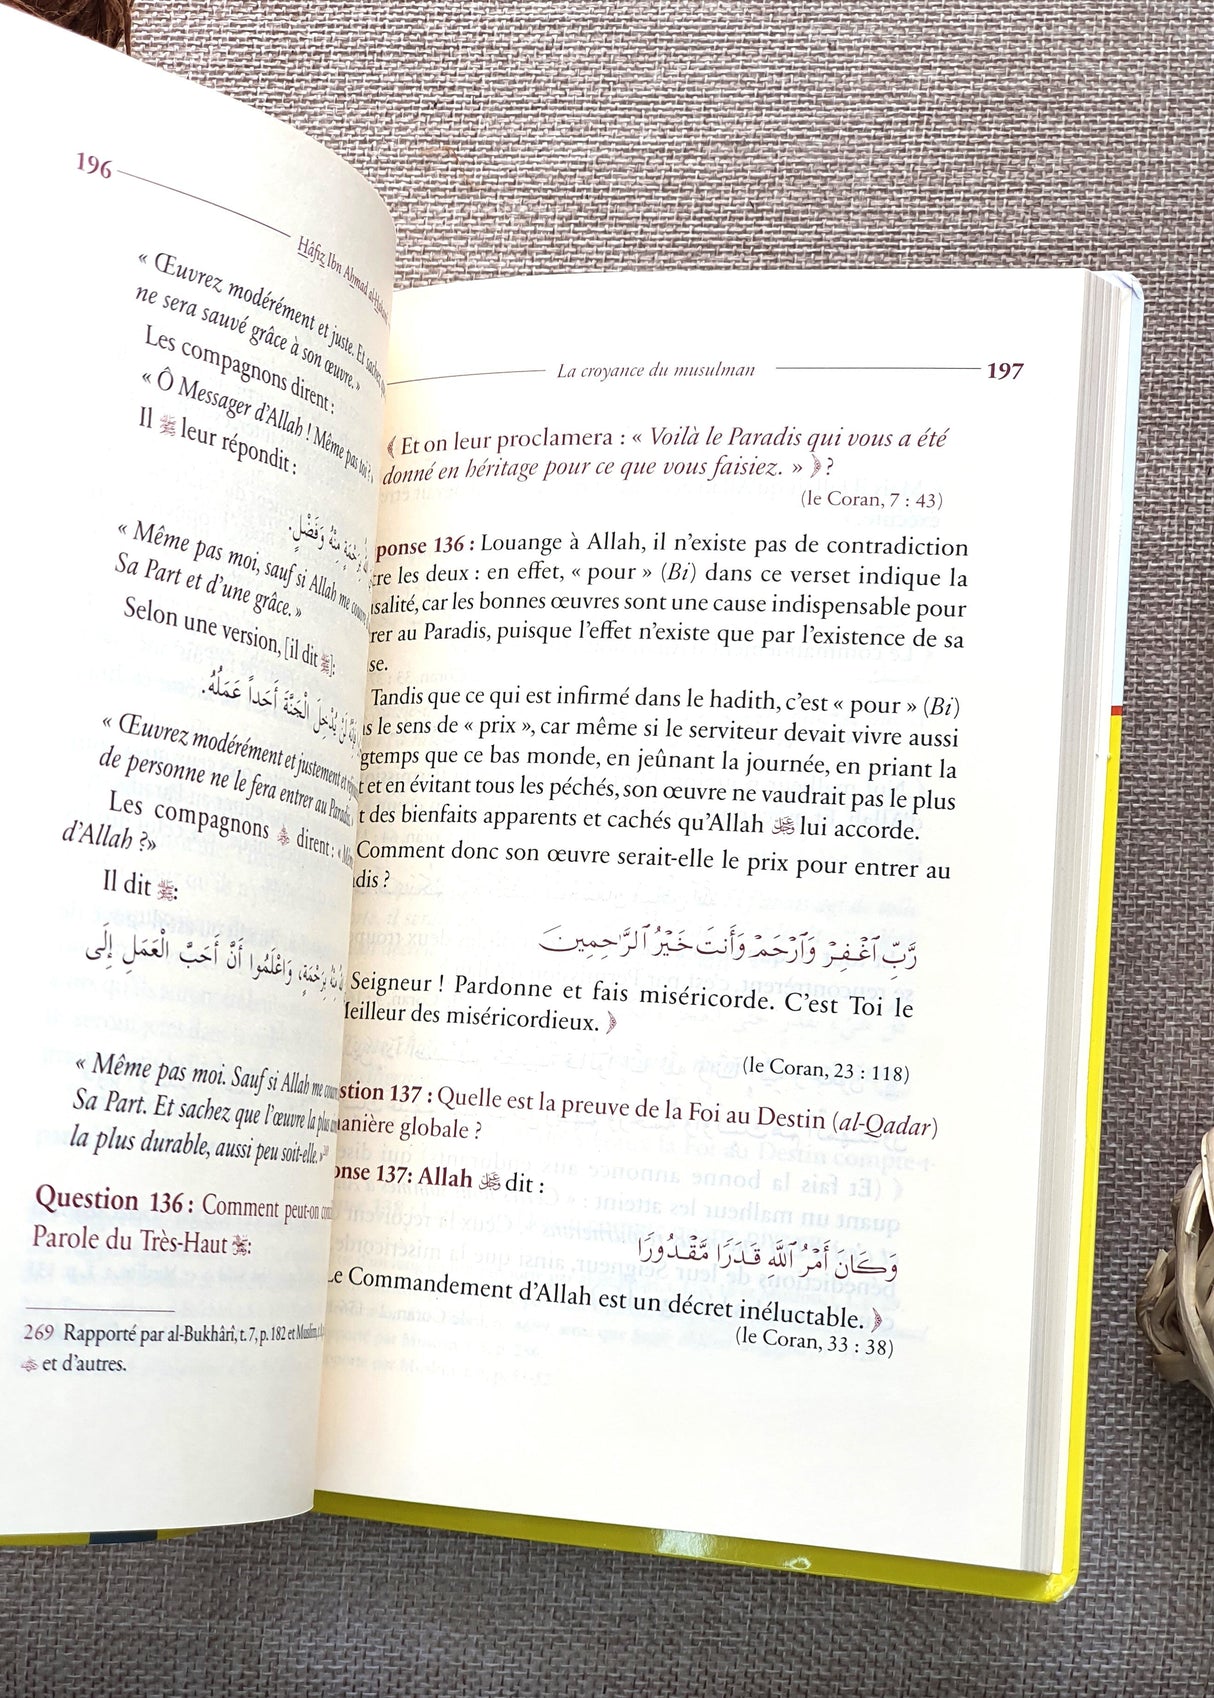 196
Háfiz Ibn Ahmad al-Hakamî
« Œuvrez modérément et juste. Et sachez
ne sera sauvé grâce à son œuvre. »
Les compagnons dirent :
« Ô Messager d'Allah ! Même pas toi ?
Il ﷺ leur répondit :
بِرَحْمَةٍ مِنْهُ وَفَضْلٍ.
« Même pas moi, sauf si Allah me
Sa Part et d'une grâce. »
Selon une version, [il dit ﷺ]:
لَنْ يُدْخِلَ الْجَنَّةَ أَحَداً عَمَلُهُ.
« Œuvrez modérément et justement et
de personne ne le fera entrer au Paradis
Les compagnons dirent : «
d'Allah ?»
Il dit ﷺ:
بِرَحْمَةٍ، وَاعْلَمُوا أَنَّ أَحَبَّ الْعَمَلِ إِلَى
« Même pas moi. Sauf si Allah me
Sa Part. Et sachez que l'œuvre la plus
la plus durable, aussi peu soit-elle.»
Question 136 : Comment peut-on
Parole du Très-Haut :
269 Rapporté par al-Bukhârî, t.7, p. 182 et Muslim,
et d'autres.
La croyance du musulman 197
﴾ Et on leur proclamera : « Voilà le Paradis qui vous a été
donné en héritage pour ce que vous faisiez. » ﴿ ?
(le Coran, 7 : 43)
ponse 136 : Louange à Allah, il n'existe pas de contradiction
tre les deux : en effet, « pour » (Bi) dans ce verset indique la
salité, car les bonnes œuvres sont une cause indispensable pour
rer au Paradis, puisque l'effet n'existe que par l'existence de sa
se.
Tandis que ce qui est infirmé dans le hadith, c'est « pour » (Bi)
s le sens de « prix », car même si le serviteur devait vivre aussi
gtemps que ce bas monde, en jeûnant la journée, en priant la
t et en évitant tous les péchés, son œuvre ne vaudrait pas le plus
t des bienfaits apparents et cachés qu'Allah lui accorde.
Comment donc son œuvre serait-elle le prix pour entrer au
dis ?
رَّبِّ ٱغْفِرْ وَٱرْحَمْ وَأَنتَ خَيْرُ ٱلرَّٰحِمِينَ
Seigneur ! Pardonne et fais miséricorde. C'est Toi le
eilleur des miséricordieux. ﴿
(le Coran, 23 : 118)
stion 137 : Quelle est la preuve de la Foi au Destin (al-Qadar)
anière globale ?
onse 137: Allah dit :
وَكَانَ أَمْرُ ٱللَّهِ قَدَرًا مَّقْدُورًا
Le Commandement d'Allah est un décret inéluctable. ﴿
(le Coran, 33 : 38)